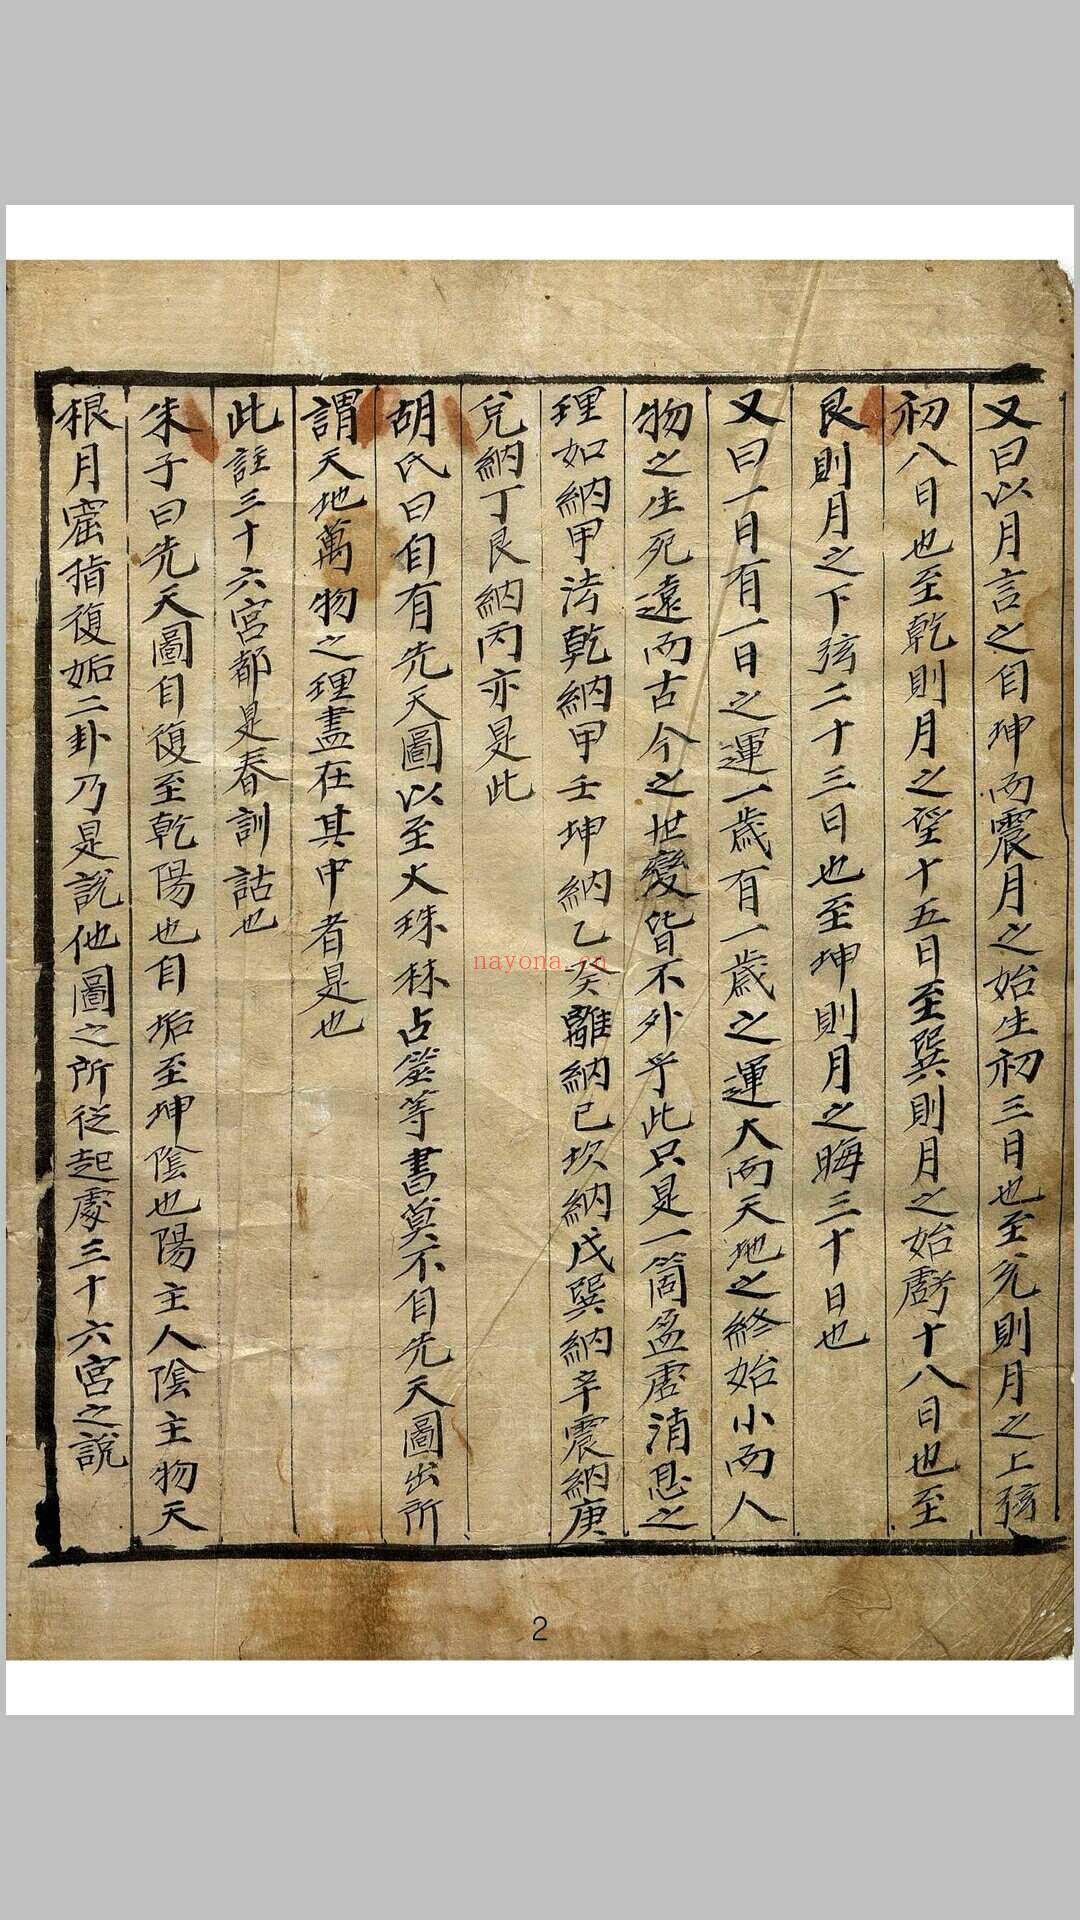 又曰以月言之自坤而震月之始生初三日也至兊則月之上弦
初八日也至乾則月之望十五日至巽則月之始虧十八日也至
艮則月之下弦二十三日也至坤則月之晦三十日也
又曰一日有一日之運一歲有一歲之運大而天地之終始小而人
物之生死遠而古今之世變皆不外乎此只是一箇盈虗消息之
理如納甲法乾納甲壬坤納乙癸離納已坎納戊巽納辛震納庚
兊納丁艮納丙亦是此
胡氏曰自有先天圖以至火珠林占筮等書莫不自先天圖出所
謂天地萬物之理盡在其中者是也
此註三十六宮都是春訓詁也
朱子曰先天圖自復至乾陽也自姤至坤陰也陽主人陰主物天
根月窟指復姤二卦乃是說他圖之所從起處三十六宮之說
nayona.cn
2